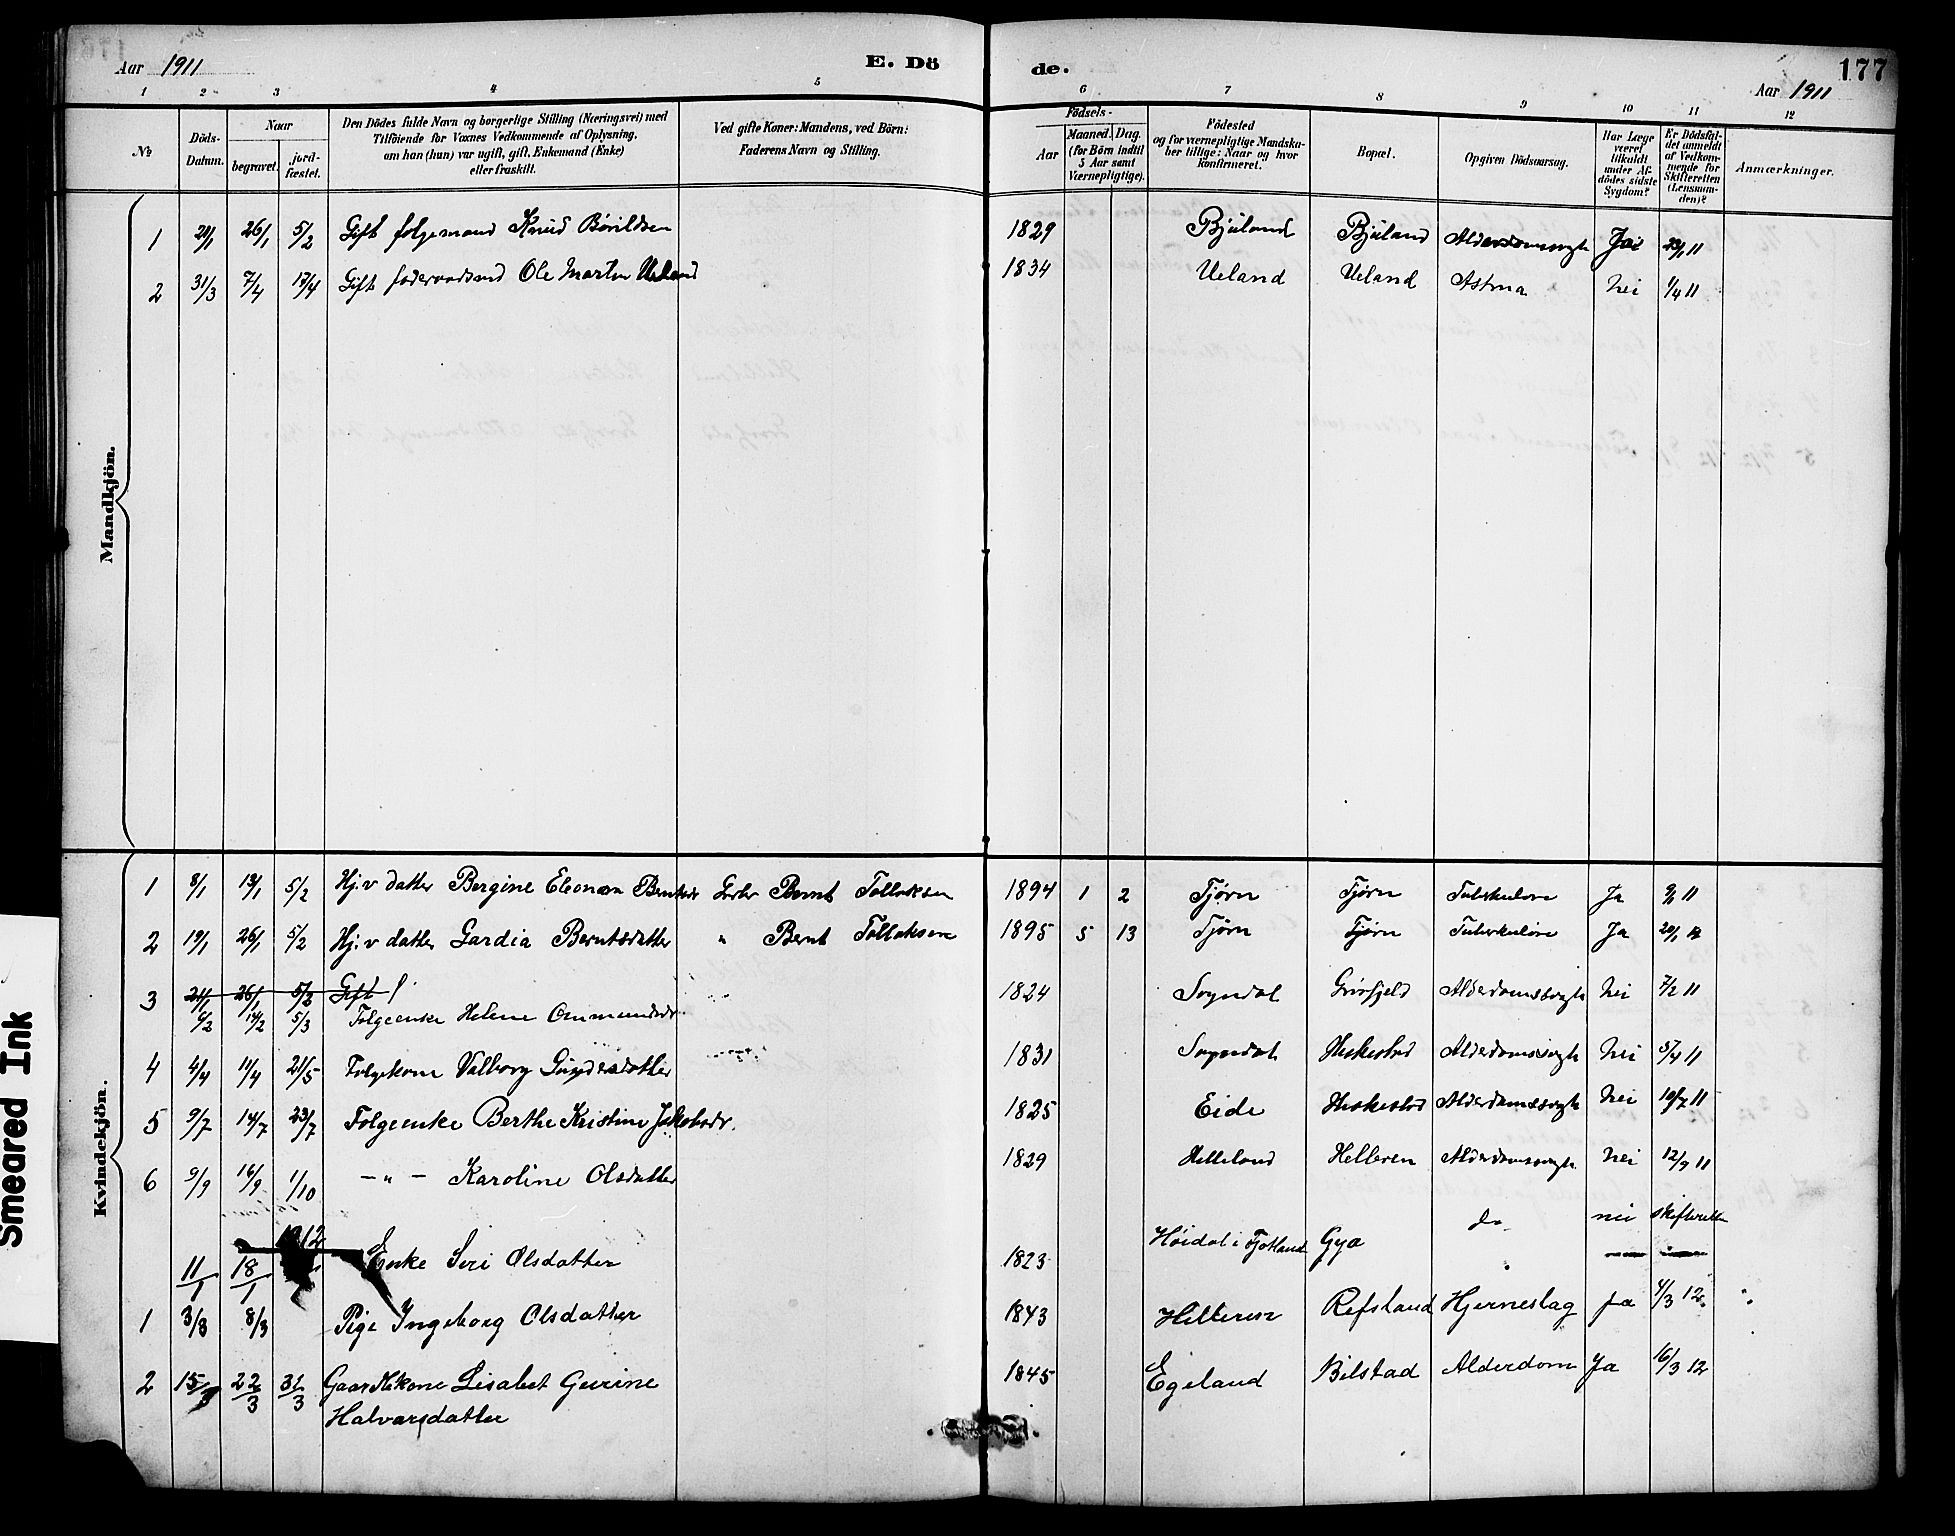 Aar 1911 E. Dö de. Aar 1911 177
1 2 3 4 5 6 7 8 9 10 11 12
№ Döds-Datum. Naar begravet. jordfæstet. Den Dödes fulde Navn og borgerlige Stilling (Næringsvei) med Tilföiende for Voxnes Vedkommende af Oplysning, om han (hun) var ugift, gift, Enkemand (Enke) eller fraskilt. Ved gifte Koner: Mandens, ved Börn: Faderens Navn og Stilling. Födsels- Aar Maaned. Dag. (for Börn indtil 5 Aar samt Værnepligtige). Födested og for værnepligtige Mandskaber tillige: Naar og hvor konfirmeret. Bopæl. Opgiven Dödsaarsag. Har Læge været tilkaldt under Afdödes sidste Sygdom? Er Dödsfaldet anmeldt af Vedkommende for Skifteretten (Lensmanden)? Anmærkninger.
Mandkjön.
1 26/1 5/2 Gift folgemand Knud Børildsen 1829 Bjuland Bjuland Alderdomssvagh Ja 11
2 31/3 7/4 17/4 Gift Ole Martin Ueland 1834 Ueland Ueland Astma Nei 1/4 11
Kvindekjön.
1 8/1 13/1 5/2 Hj.v datter Bergine Bernt Tollaksen 1894 1 2 Tjørn Tjørn Tuberkulose Ja 9/1 11
2 19/1 26/1 5/2 Hj.v datter Gardia Berntsdatter " Bernt Tollaksen 1895 5 13 Tjørn Tjørn Tuberkulose Ja 20/1
3 21/1 26/1 5/2 Gift
6/2 14/2 5/3 Folgeenke Helene Ommundsdr. 1824 Sogndal Grøsfjeld Alderdomssvagh Nei 7/2 11
4 4/4 11/4 21/5 Folgekone Valborg Gundersdatter 1831 Sogndal Heskestad Alderdomssvagh Nei 5/4 11
5 9/7 14/7 23/7 Folgeenke Berthe Kristine Jakobsdr. 1825 Eide Heskestad Alderdomssvagh Nei 10/7 11
6 9/9 16/9 1/10 — " — Karoline Olsdatter 1829 Helleland Helleren Alderdomssvagh Nei 12/9 11
1912
11/1 18/1 Enke Siri Olsdatter 1823 Høidal i Fjotland Gya do nei skifteretten
1 3/3 8/3 Pige Ingeborg Olsdatter 1843 Helleren Refsland Hjerneslag Ja 4/3 12.
2 15/3 22/3 31/3 Gaardkone Lisabet Gurine 1845 Egeland Bilstad Alderdom Ja 16/3 12
Halvarsdatter
Smeared Ink